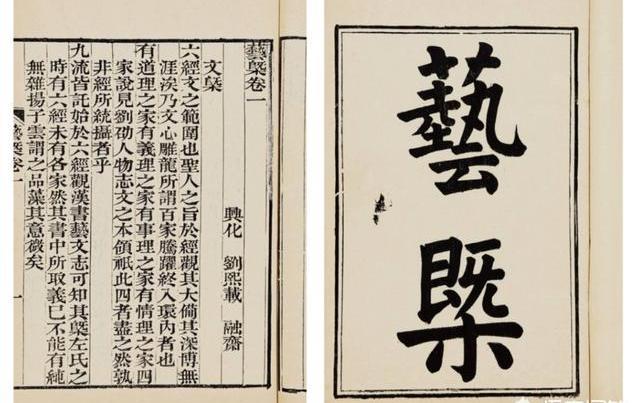 藝槩
藝槩卷一
興化 劉熙載 融齋
文槩
六經文之範圍也聖人之旨於經觀其大備其深博無
涯涘乃文心雕龍所謂百家騰躍終入環內者也
有道理之家有義理之家有事理之家有情理之家四
家說見劉劭人物志文之本領祇此四者盡之然孰
非經所統攝者乎
九流皆託始於六經觀漢書藝文志可知其槩左氏之
時有六經未有各家然其書中所取義已不能有純
無雜揚子雲謂之品藻其意微矣
藝槩卷一 一